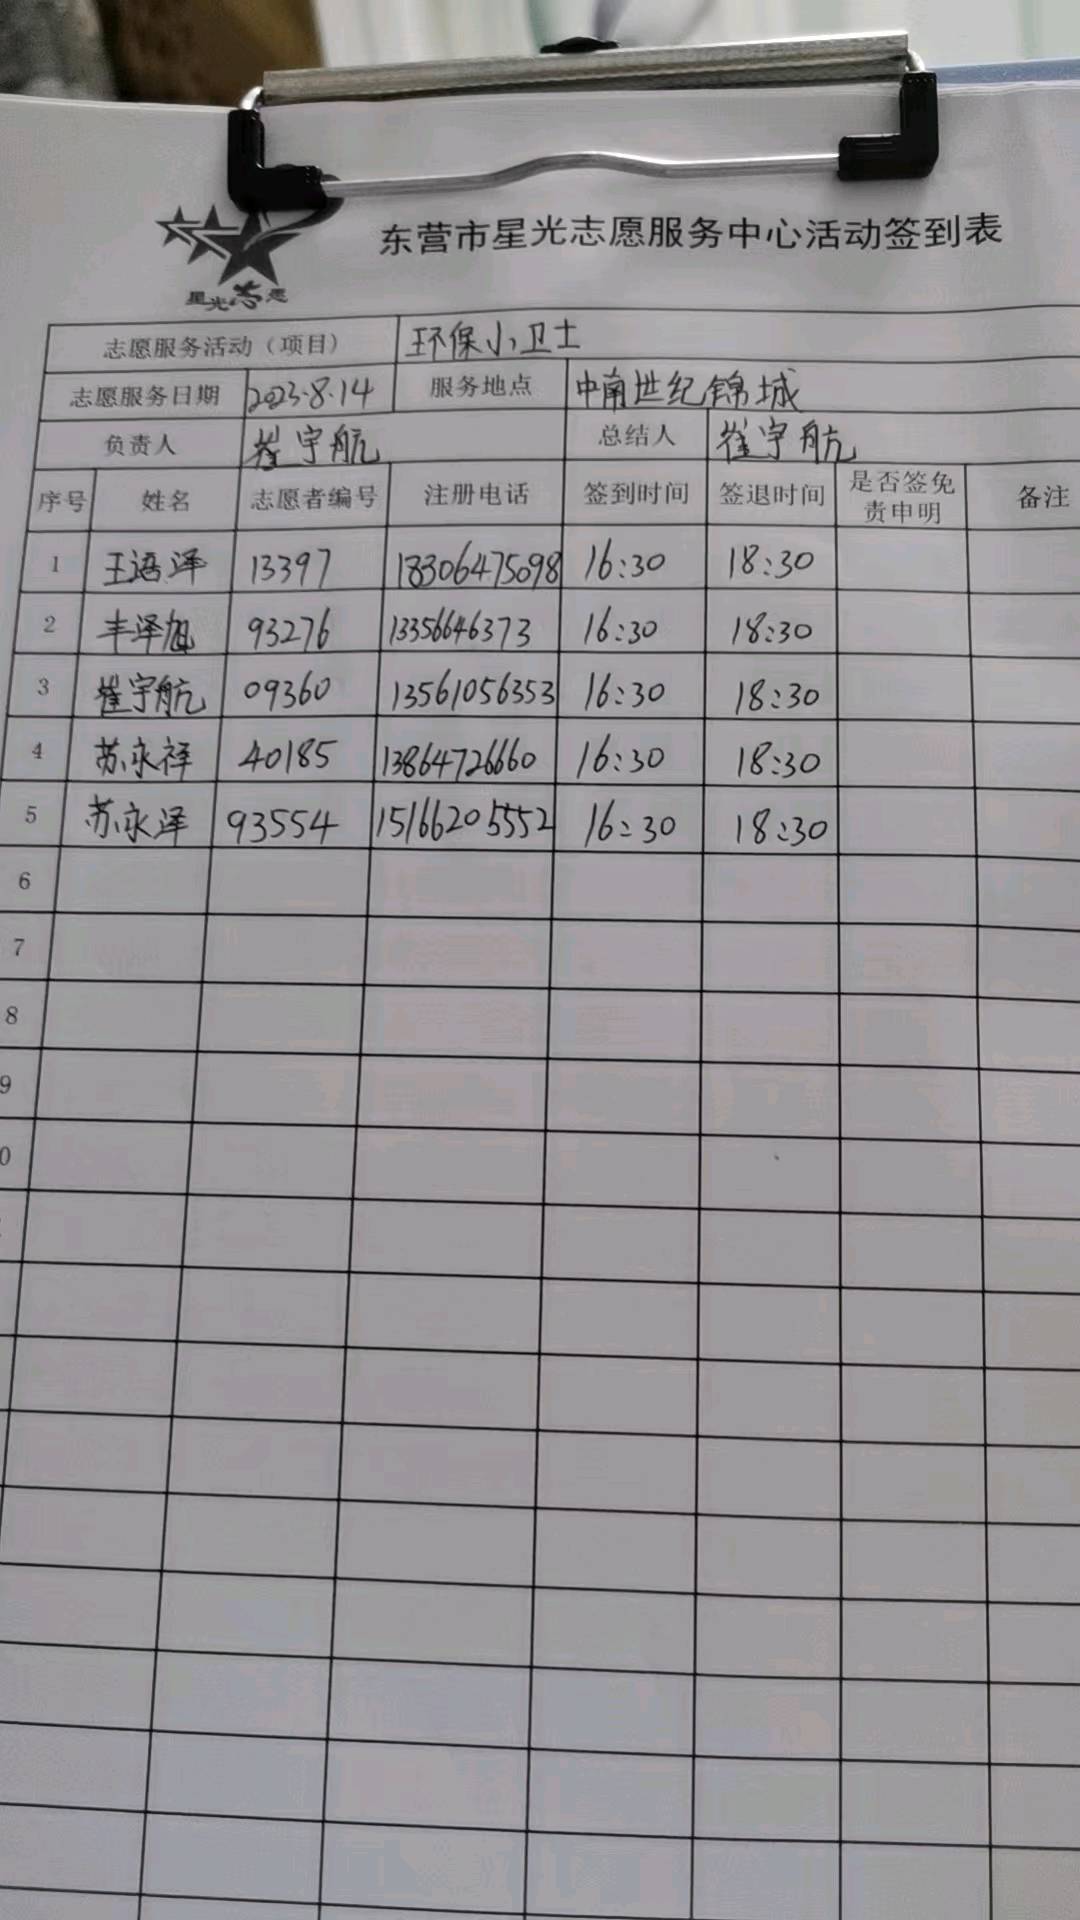 东营市星光志愿服务中心活动签到表
星光志愿
志愿服务活动（项目） 环保小卫士
志愿服务日期 2023.8.14 服务地点 中南世纪锦城
负责人 崔宇航 总结人 崔宇航
序号 姓名 志愿者编号 注册电话 签到时间 签退时间 是否签免责申明 备注
1 王语泽 13397 18306475098 16:30 18:30
2 丰泽旭 93276 13356646373 16:30 18:30
3 崔宇航 09360 13561056353 16:30 18:30
4 苏永祥 40185 13864726660 16:30 18:30
5 苏永泽 93554 15166205552 16:30 18:30
6
7
8
9
0